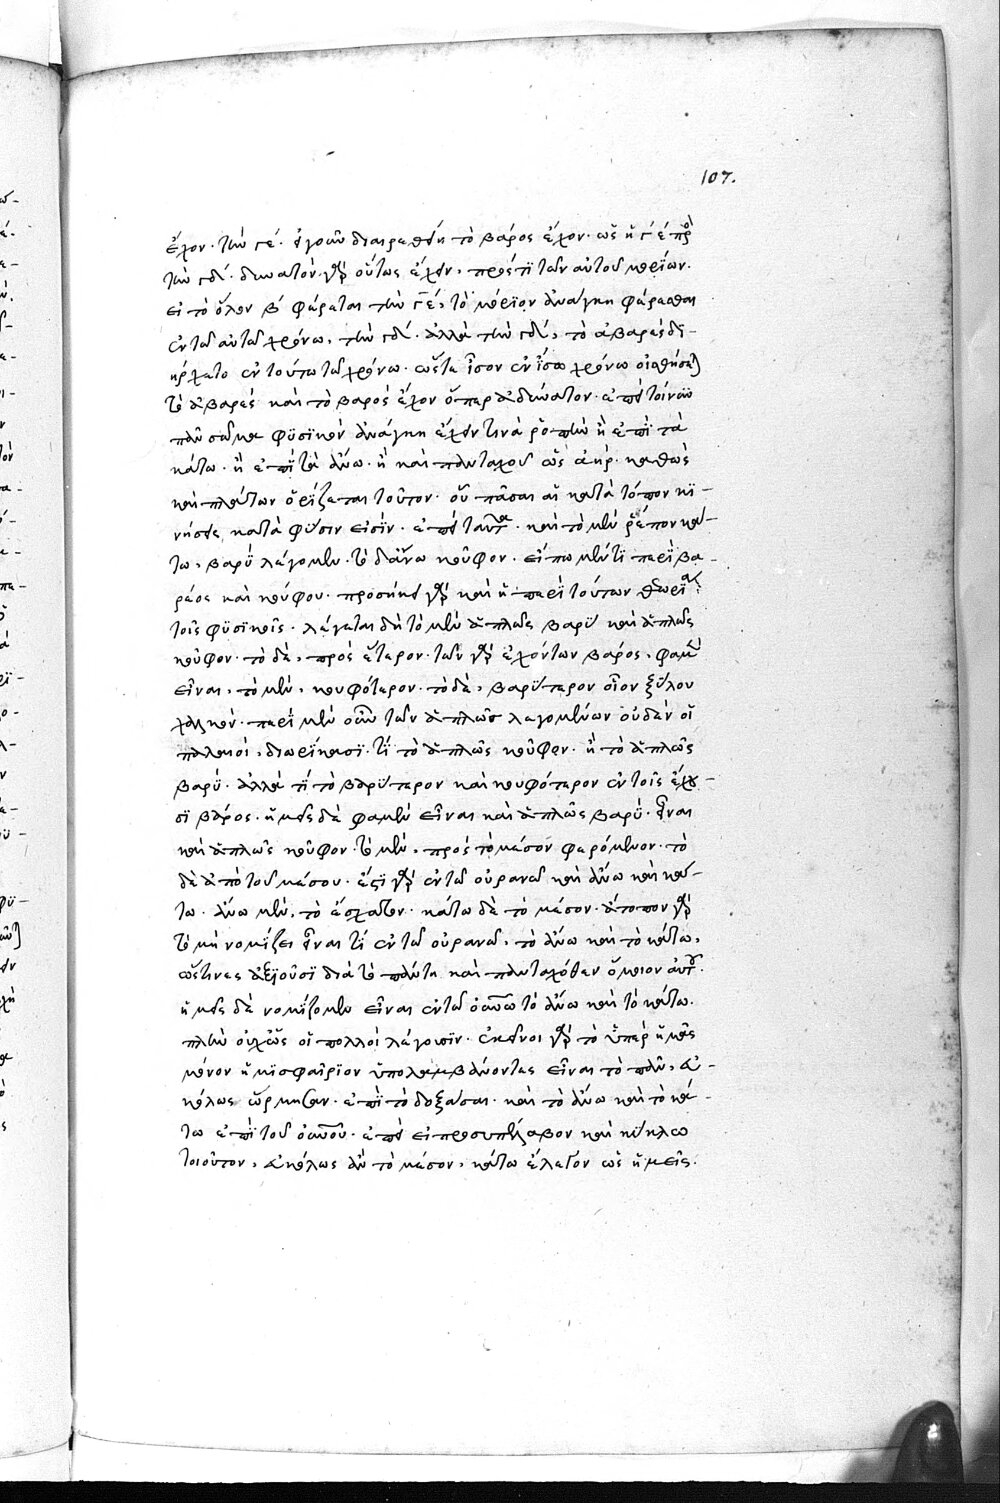 107.
ἔχον· τὴν γε· ἐγοῦν διαιρεθῇ τὸ βάρος ἔχον· ὡς ἡ γε πρὸ
τὴν γδ· δυνατὸν γὰρ οὕτως ἔχειν, πρός τι τῶν αὐτοῦ μορίων.
εἰ τὸ ὅλον β φέρεται τὴν γε, τὸ μόριον ἀνάγκη φέρεσθαι
ἐν τῶ αὐτῶ χρόνω, τὴν γδ. ἀλλὰ τὴν γδ, τὸ ἀβαρὲς δι-
ήρχετο ἐν τούτω τῶ χρόνω· ὥστε ἴσον ἐν ἴσω χρόνω οἰσθήσεται
τὸ ἀβαρὲς καὶ τὸ βάρος ἔχον ὅπερ ἀδύνατον· ἐπεὶ τοίνυν
πᾶν σῶμα φυσικὸν ἀνάγκη ἔχειν τινὰ ῥοπὴν ἢ ἐπὶ τὰ
κάτω· ἢ ἐπὶ τὰ ἄνω· ἢ καὶ πανταχοῦ ὡς ἀήρ· καθὼς
καὶ πλάτων ὁρίζεται τοῦτον· οὐ πᾶσαι αἱ κατὰ τόπον κι-
νήσεις κατὰ φύσιν εἰσίν· ἐπεὶ ταῦτα· καὶ τὸ μὲν ῥέπον κά-
τω, βαρὺ λέγομεν· τὸ δ' ἄνω κοῦφον· εἴπωμέν τι περὶ βα-
ρέος καὶ κούφου· προσήκει γὰρ καὶ ἡ περὶ τούτων θεωρία
τοῖς φυσικοῖς· λέγεται δὴ τὸ μὲν ἁπλῶς βαρὺ καὶ ἁπλῶς
κοῦφον· τὸ δὲ, πρὸς ἕτερον· τῶν γὰρ ἐχόντων βάρος, φαμὲν
εἶναι, τὸ μὲν, κουφότερον· τὸ δὲ, βαρύτερον οἷον ξύλου
χαλκόν· περὶ μὲν οὖν τῶν ἁπλῶς λεγομένων οὐδὲν οἱ
παλαιοὶ, διωρίκασι· τί τὸ ἁπλῶς κοῦφον· ἢ τὸ ἁπλῶς
βαρύ· ἀλλὰ τί τὸ βαρύτερον καὶ κουφότερον ἐν τοῖς ἔχου-
σι βάρος· ἡμεῖς δὲ φαμὲν εἶναι καὶ ἁπλῶς βαρύ· εἶναι
καὶ ἁπλῶς κοῦφον· τὸ μὲν, πρὸς τὸ μέσον φερόμενον· τὸ
δὲ ἀπὸ τοῦ μέσου· ἔστι γὰρ ἐν τῶ οὐρανῶ καὶ ἄνω καὶ κά-
τω· ἄνω μὲν, τὸ ἔσχατον· κάτω δὲ τὸ μέσον· ἄτοπον γὰρ
τὸ μὴ νομίζει εἶναι τί ἐν τῶ οὐρανῶ, τὸ ἄνω καὶ τὸ κάτω,
ὥς τινες ἀξιοῦσι διὰ τὸ πάντη καὶ πανταχόθεν ὅμοιον αὐτοῦ.
ἡμεῖς δὲ νομίζομεν εἶναι ἐν τῶ οὐνῶ τὸ ἄνω καὶ τὸ κάτω.
πλὴν οὐχ ὡς οἱ πολλοὶ λέγουσιν· ἐκεῖνοι γὰρ τὸ ὑπὲρ ἡμᾶς
μόνον ἡμισφαίριον ὑπολαμβάνοντες εἶναι τὸ πᾶν, εὐ-
κόλως ὥρμησαν· ἐπὶ τὸ δοξάσαι· καὶ τὸ ἄνω καὶ τὸ κά-
τω ἐπὶ τοῦ οὐνοῦ· ἐπεὶ εἰ προσυπέλαβον καὶ κύκλω
τοιοῦτον, εὐκόλως ἂν τὸ μέσον, κάτω ἔλεγον ὡς ἡμεῖς.